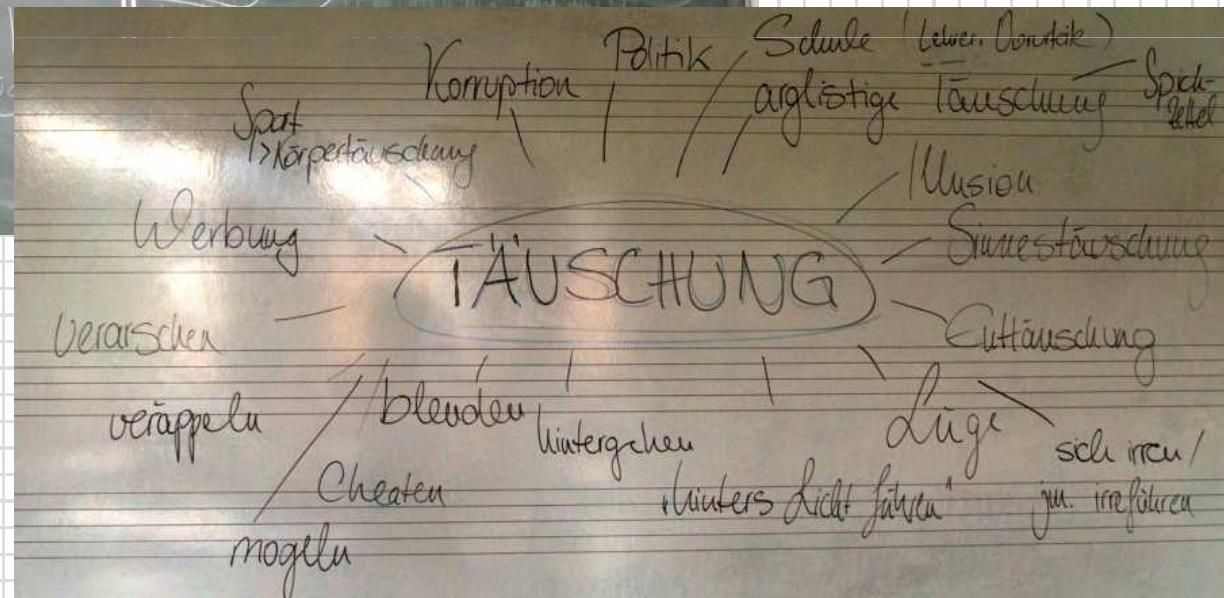 Korruption
Politik
Schule (Lehrer,
arglistige Täuschung
Spick-
zettel
Sport
> Körpertäuschung
Illusion
Werbung
Sinnestäuschung
TÄUSCHUNG
Enttäuschung
verarschen
veräppeln
blenden
hintergehen
Lüge
sich irren /
jm. irreführen
Cheaten
"hinters Licht führen"
mogeln